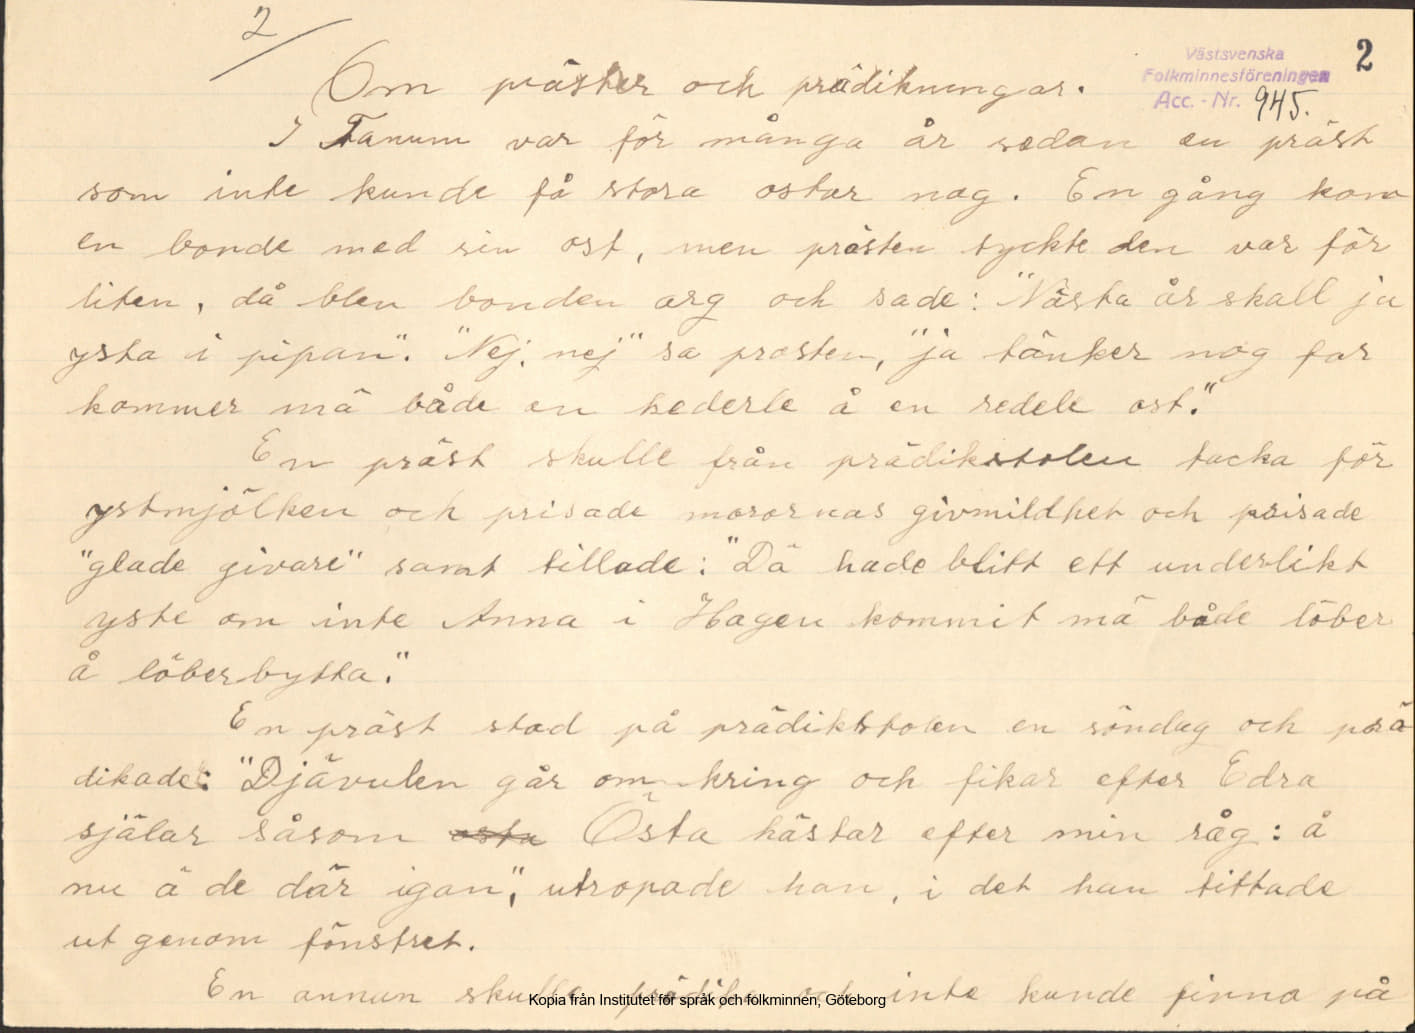 2
2
Västsvenska
Folkminnesföreningen
Acc. - Nr. 945.
Om präster och prädikningar.
I Tanum var för många år sedan en präst
som inte kunde få stora ostar nog. En gång kom
en bonde med sin ost, men prästen tyckte den var för
liten, då blev bonden arg och sade: "Nästa år skall ja
ysta i pipan". "Nej, nej" sa prosten, "ja tänker nog far
kommer mä både en hederle å en redele ost."
En präst skulle från prädikstolen tacka för
ystmjölken och prisade morornas givmildhet och prisade
"glade givare" samt tillade: "Dä hade blitt ett underlikt
yste om inte Anna i Hagen kommit mä både löber
å löberbytta."
En präst stod på prädikstolen en söndag och prä
dikade: "Djävulen går omkring och fikar efter Edra
själar såsom osta Östa hästar efter min råg: å
nu ä de där igan", utropade han, i det han tittade
ut genom fönstret.
En annan skulle prädika och inte kunde finna på
Kopia från Institutet för språk och folkminnen, Göteborg